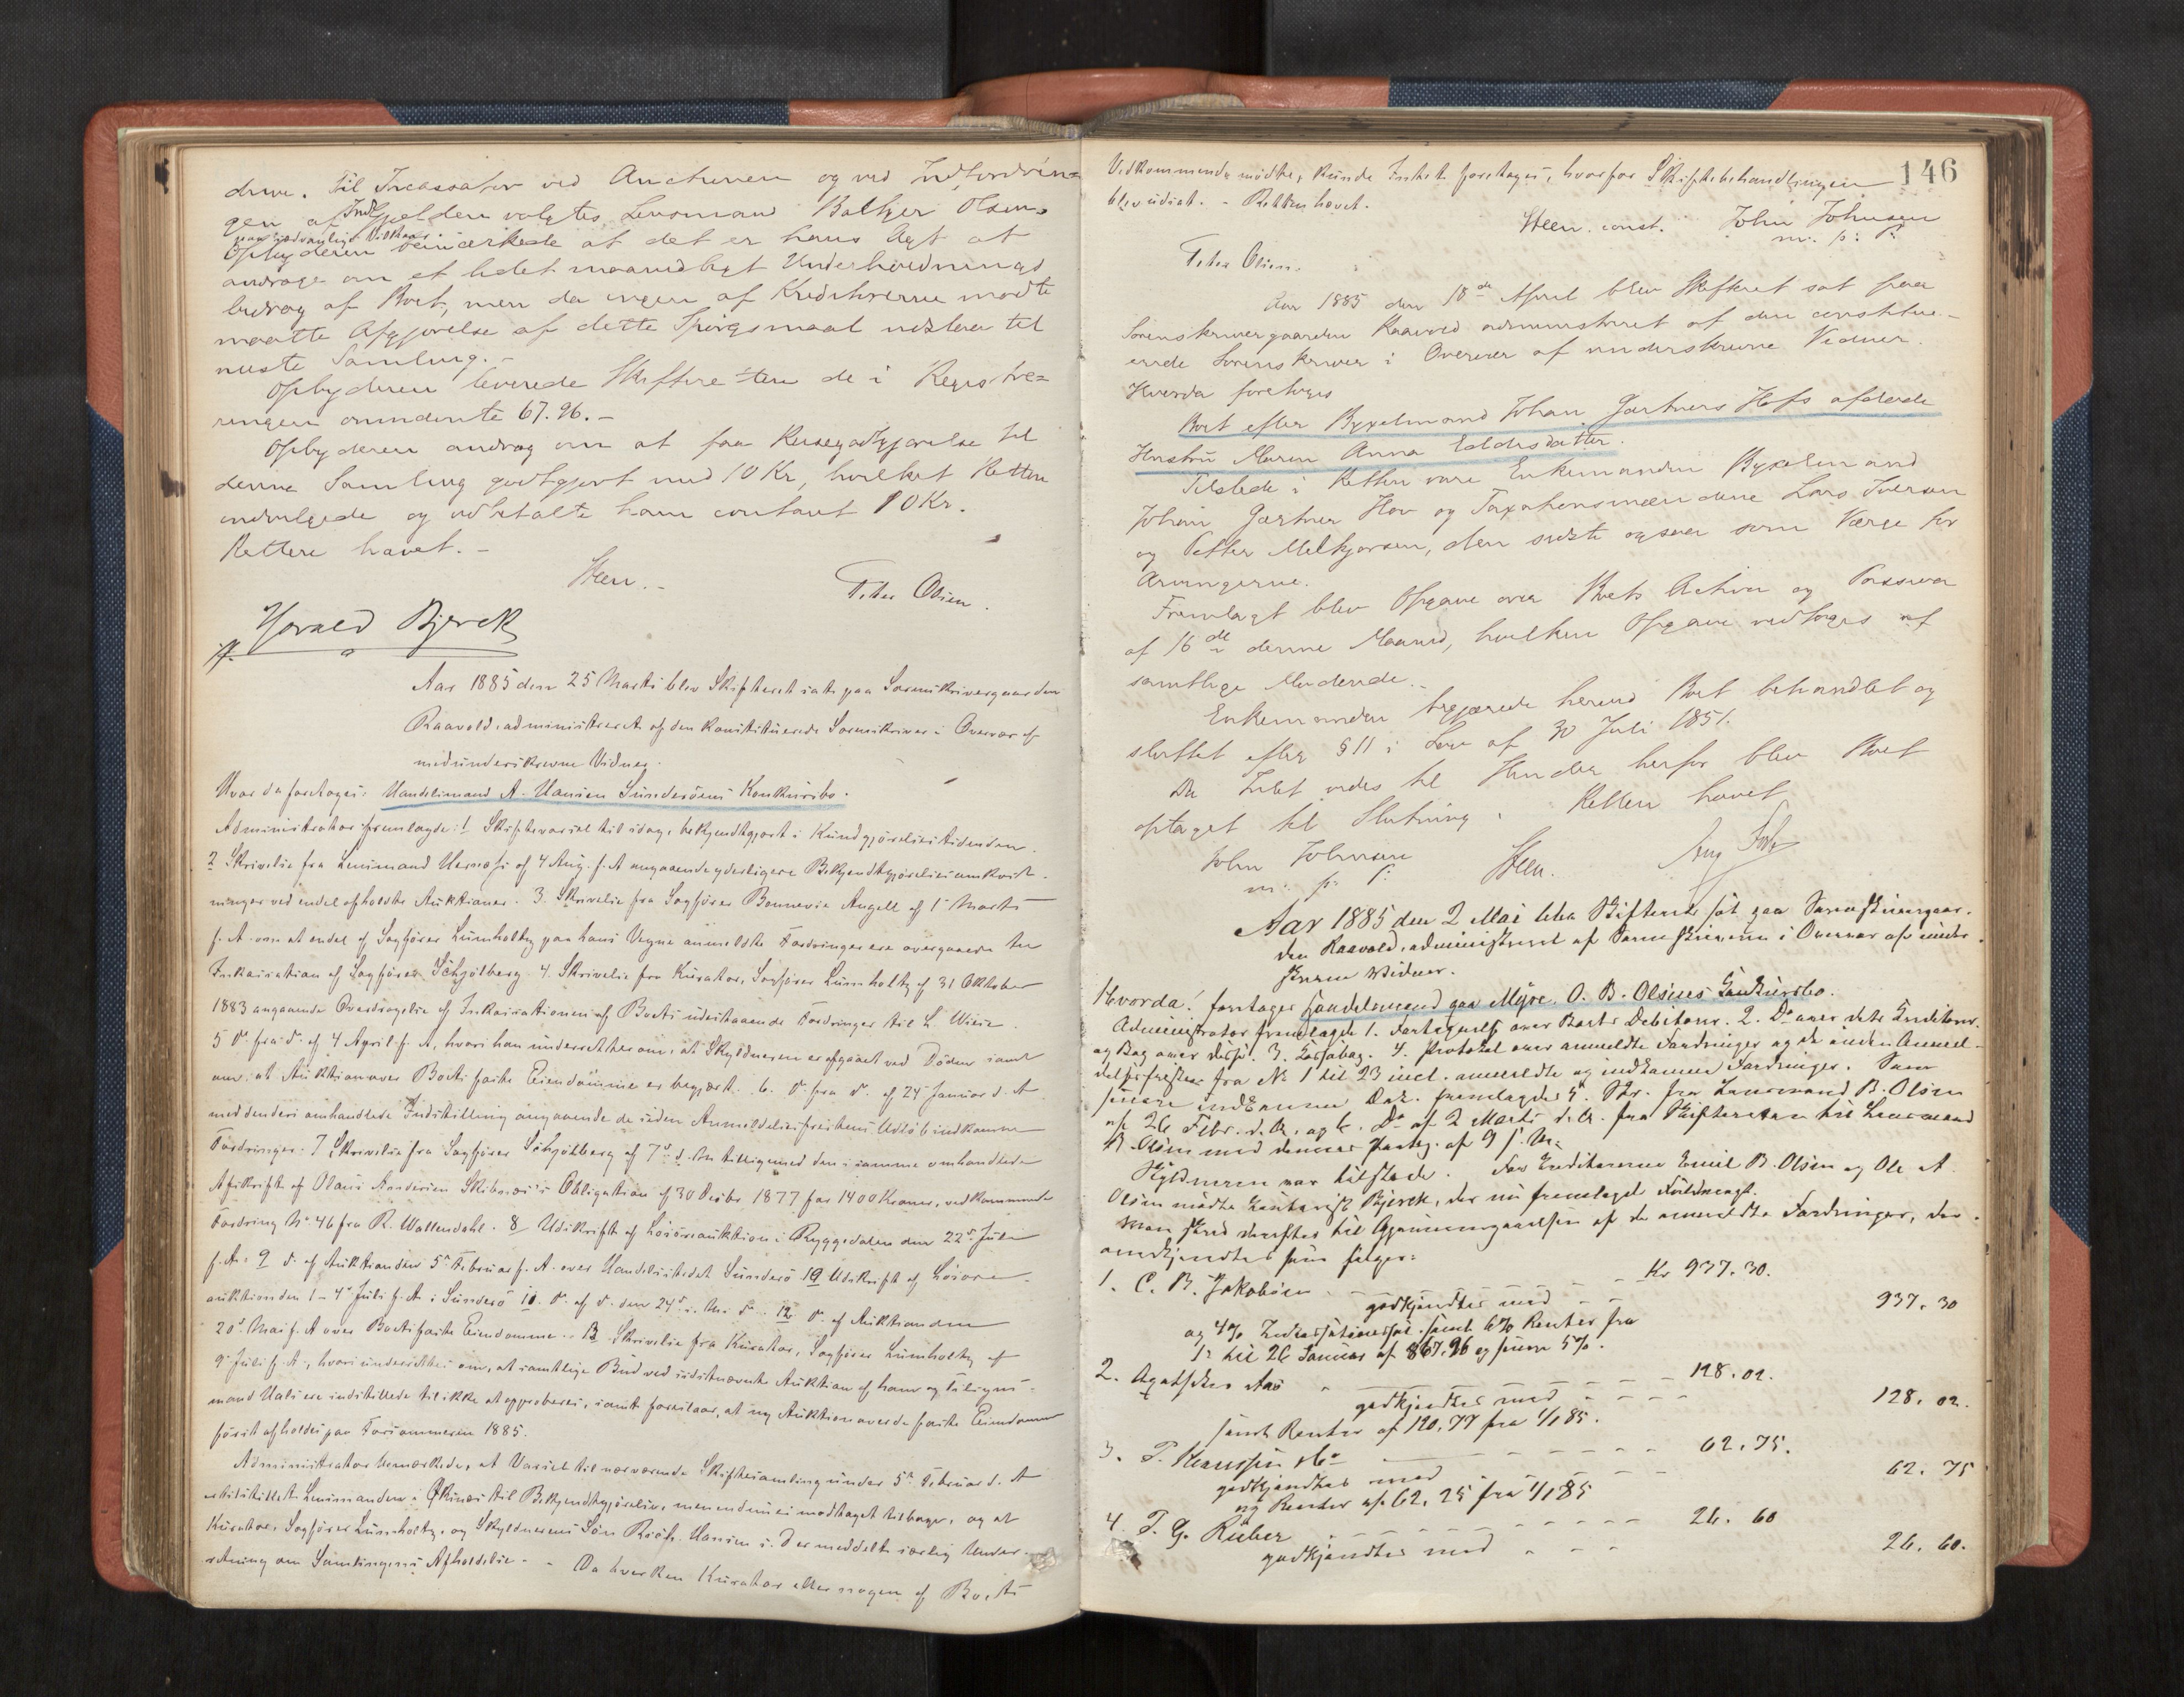 drive. Til Incassator ved Auctionen og ved Indfordrin=
gen af Indtgjælden valgtes Lensmand Baltzer Olsen
paa sædvanlige Vilkaar.
Opbyderen bemærkede at det er hans Agt at
andrage om et lidet maanedligt Underholdnings
bidrag af Boet, men da ingen af Kreditorerne mødte
maatte Afgjørelse af dette Spørgsmaal udstaa til
næste Samling. -
Opbyderen leverede Skifteretten de i Registre=
ringen ommeldte 67.96. -
Opbyderen androg om at faa Reisegodtgjørelse til
denne Samling godtgjort med 10 Kr, hvilket Retten
indvilgede og udbetalte ham contant 10 Kr.
Retten hævet. -
Steen. -
Peter Olsen.
Harald Bjerck
Aar 1885 den 25 Marts blev Skifteret sat paa Sorenskrivergaarden
Raavold, administreret af den konstituerede Sorenskriver i Overvær af
medunderskrevne Vidner.
Hvor da foretoges: Handelsmand A. Hansen Sunderöens Konkursbo.
Administrator fremlagde: 1 Skiftevarsel til idag, bekjendtgjort i Kundgjörelsestidenden.
2 Skrivelse fra Lensmand af 4 Aug. f. A angaaende yderligere Bekjendtgjörelsesomkost-
ninger ved endel afholdte Auktioner. 3. Skrivelse fra Sagförer Bonnevie Angell af 1 Marts
f. A. om at endel af Sagförer Lumholtz paa hans Vegne anmeldte Fordringer ere overgaaede til
Inkassation af Sagförer Schjölberg. 4. Skrivelse fra Kurator, Sagförer Lumholtz af 31 Oktober
1883 angaaende Overdragelse af Inkassationen af Boets udestaaende Fordringer til L. Wiese.
5 Do fra Do af 4 April f. A, hvori han underretter om, at Skyldneren er afgaaet ved Döden samt
om, at Auktion over Boets faste Eiendomme er begjært. 6. Do fra Do af 24 Januar d. A
med denderi omhandlede Indstilling angaaende de siden Anmeldelsesfristens Udlöb indkomne
Fordringer. 7 Skrivelse fra Sagförer Schjölberg af 7de d. M tilligemed den i samme omhandlede
Afskrift af Olaus Andersen Skibsnæs's Obligation af 30 Decbr 1877 for 1400 Kroner, vedkommende
Fordring No 46 fra R. Wallendahl. 8 Udskrift af Lösöreauktion i Ryggedalen den 22de Juli
f. A. 9 Do af Auktion den 5te Februar f. A. over Handelsstedet Sunderö 10 Udskrift af Lösöre-
auktion den 1 - 4de Juli f. A i Sunderö 11. Do af Do den 24de s. M. Do. 12 Do af Auktion den
20de Mai f. A over Boets faste Eiendomme. 13 Skrivelse fra Kurator, Sagförer Lumholtz af
9 Juli f. A., hvori underrettes om, at samtlige Bud ved sidstnævnte Auktion af ham og Tilsyns-
mand Hals ere indstillede til ikke at approberes, samt foreslaar, at ny Auktion over de faste Eiendomme
först afholdes paa Forsommeren 1885.
Administrator bemærkede, at Varsel til nærværende Skiftesamling under 5te Februar d. A
er tilstillet Lensmanden i Öksnæs til Bekjendtgjörelse, men endnu ei modtaget tilbage, og at
Kurator, Sagförer Lumholtz, og Skyldnerens Sön Rich. Hansen s. D er meddelt særlig Under-
retning om Samlingens Afholdelse. - Da hverken Kurator eller nogen af Boets
146
Vedkommende mödte, kunde Intet foretages, hvorfor Skiftebehandlingen
blev udsat. - Retten hævet.
Steen. const. John Johnsen
m. p: P:
Peter Olsen.
Aar 1885 den 18de April blev Skifteret sat paa
Sorenskrivergaarden Raavold administreret af den constitu-
erede Sorenskriver i Overvær af underskrevne Vidner.
Hvorda foretoges
Boet efter Bygselmand Johan Gartners Hofs afdøde
Hustru Maren Anna Eddisdatter.
Tilstede i Retten vare Enkemanden Bygselmand
Johan Gartner Hov og Taxationsmændene Lars Iversen
og Petter Melkjorsen, den sidste ogsaa som Værge for
Arvingerne.
Fremlagt blev Opgave over Boets Activa og Passiva
af 16de denne Maaned, hvilken Opgave vedtoges af
samtlige Mødende. -
Enkemanden begjærede herved Boet behandlet og
sluttet efter § 11 i Lov af 30 Juli 1851.
Da Intet vides til Hinder herfor blev Boet
optaget til Slutning. Retten hævet
John Johnsen Steen.
m: p: P:
Aar 1885 den 2 Mai blev Skifteret sat paa Sorenskrivergaar-
den Raavold, administreret af Sorenskriveren i Overvær af under-
skrevne Vidner.
Hvorda! foretoges Handelsmand paa Myre O. B. Olsens Konkursbo.
Administrator fremlagde 1. Fortegnelse over Boets Debitorer. 2. Do over dets Kreditorer
og Bog over disse. 3. Kassabog. 4. Protokol over anmeldte Fordringer og de inden Anmel-
delsesfristen fra No 1 til 23 incl. anmeldte og indkomne Fordringer. Som
senere indkomne Dok. fremlagdes 5. Skr. fra Lensmand B. Olsen
af 26 Febr. d. A. og 6. Do af 2 Marts d. A. fra Skifteretten til Lensmand
B. Olsen med dennes Paateg. af 9 s. M.
Skyldneren var tilstede. For Kreditorerne Emil B. Olsen og Ole A.
Olsen mødte Kontorist Bjerck, der nu fremlagde Fuldmagt.
Man skred derefter til Gjennemgaaelsen af de anmeldte Fordringer, der
anerkjendtes som følger:
1. C. B. Jakobsen - - - - - Kr 937.30.
godkjendtes med - - 937.30
og 4% Inkassationssal. samt 6% Renter fra
1 til 26 Januar af 867.96 og senere 5%.
2. Agathsen Aas - - - - - 128.02.
godkjendtes med - - - - 128.02.
samt Renter af 120.77 fra 1/1 85.
3. T. Klaussen & Co - - - - - 62.75.
godkjendtes med - - 62.75
og Renter af 62.25 fra 1/1 85
4. T. G. Rieber - - - - - - 26.60
godkjendtes med - - - 26.60.